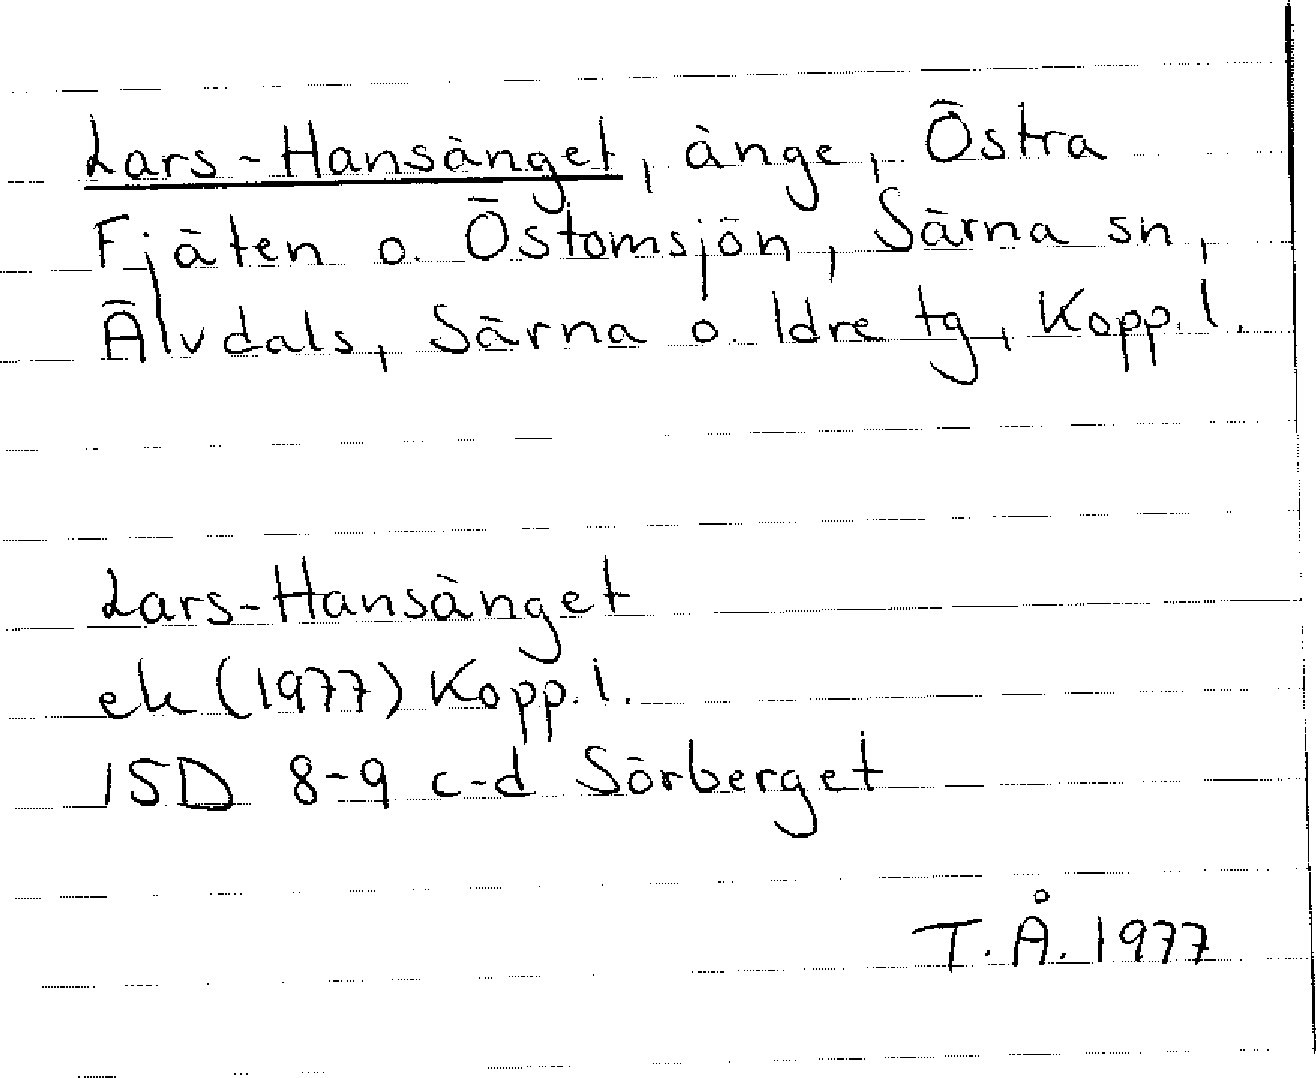 Lars-Hansänget, änge, Östra
Fjäten o. Östomsjön, Särna sn,
Älvdals, Särna o. Idre tg, Kopp. l.
Lars-Hansänget
ek (1977) Kopp. l.
15D 8-9 c-d Sörberget
T.Å. 1977